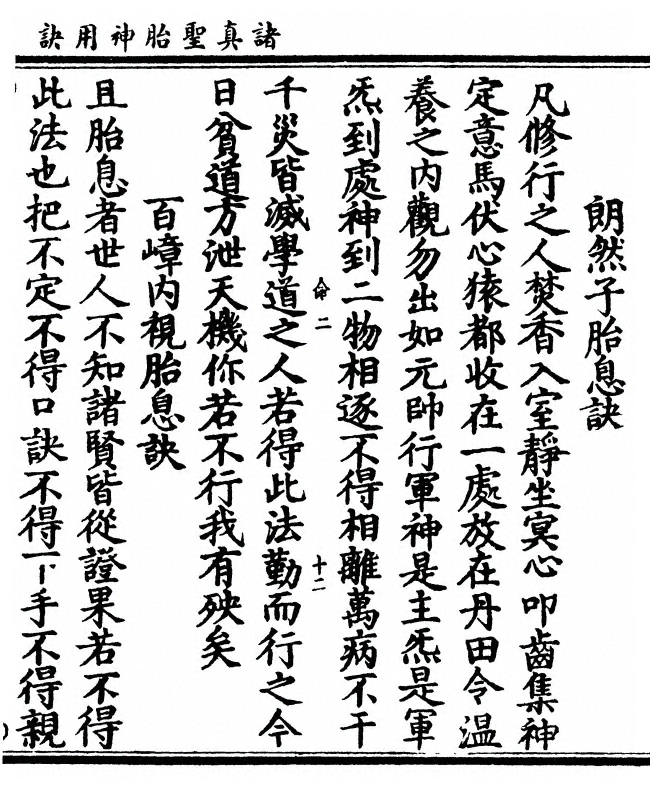 諸真聖胎神用訣
朗然子胎息訣
凡修行之人焚香入室靜坐冥心叩齒集神
定意馬伏心猿都收在一處放在丹田令温
養之内觀勿出如元帥行軍神是主炁是軍
炁到處神到二物相逐不得相離萬病不干
命二
十二
千災皆滅學道之人若得此法勤而行之今
日貧道方泄天機你若不行我有殃矣
百嶂内視胎息訣
且胎息者世人不知諸賢皆從證果若不得
此法也把不定不得口訣不得下手不得親